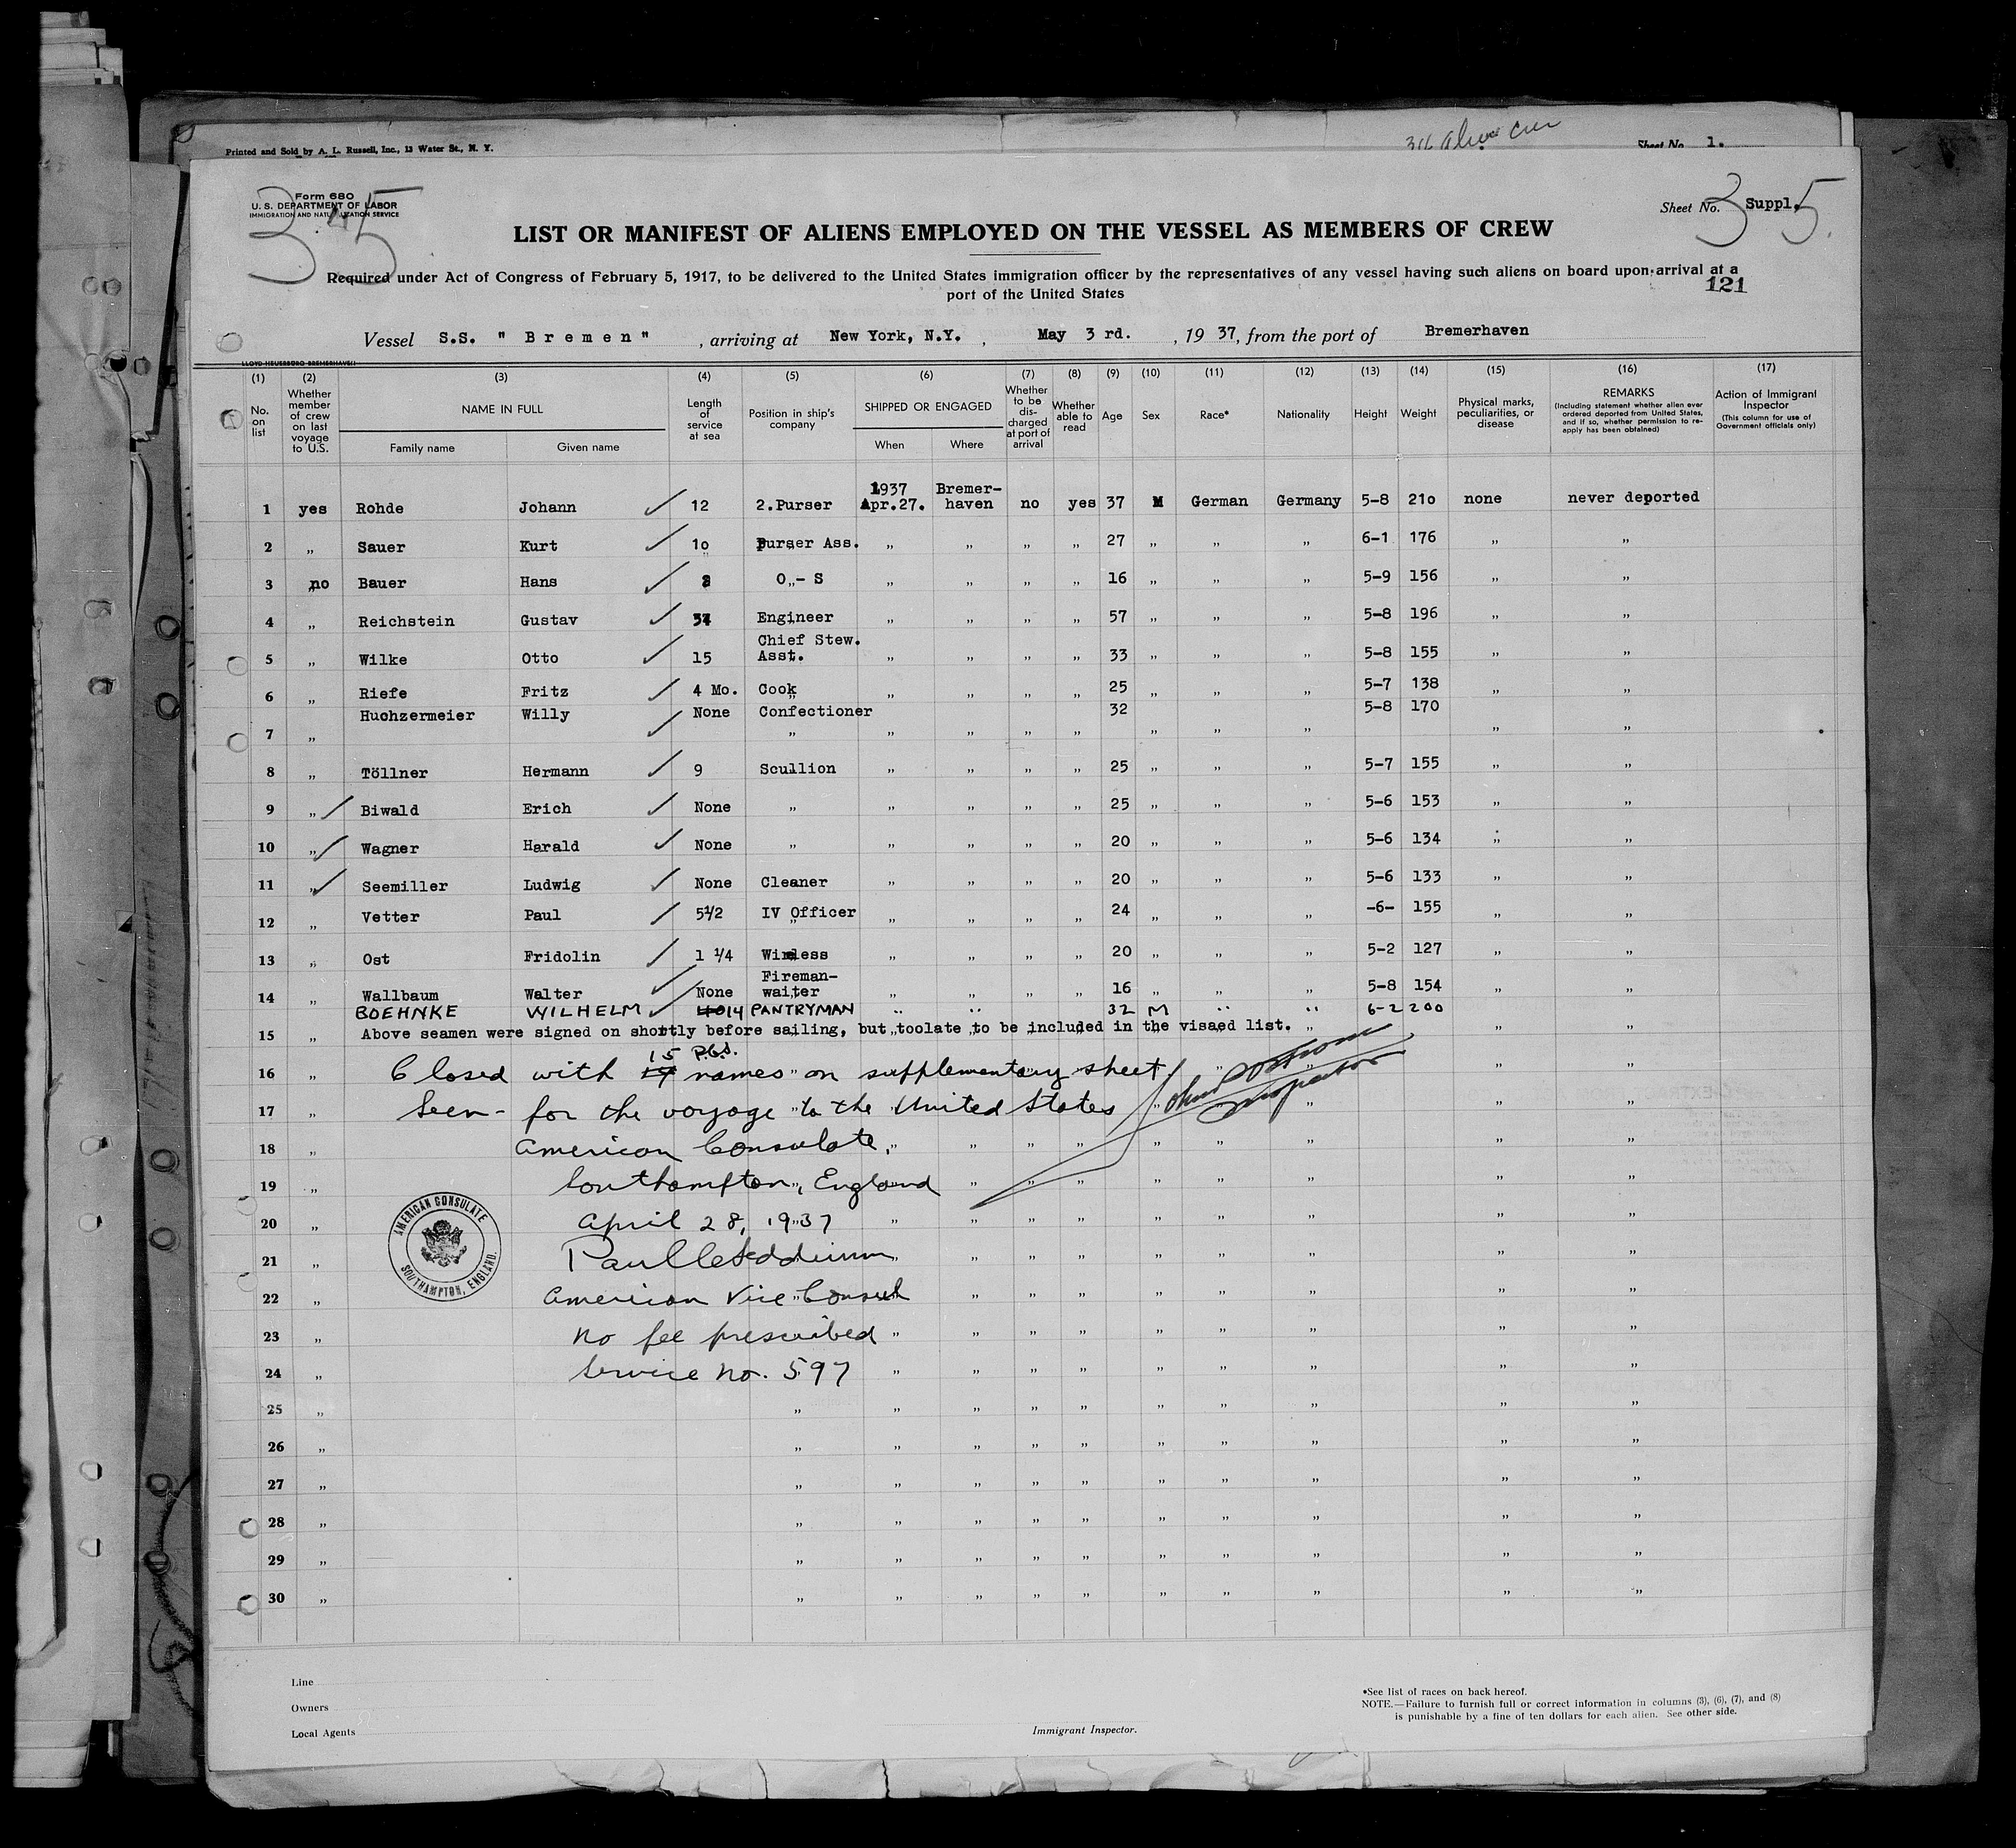 Printed and Sold by A. L. Russell, Inc., 13 Water St., N. Y.
Sheet No. 1.
Form 680
U. S. DEPARTMENT OF LABOR
IMMIGRATION AND NATURALIZATION SERVICE
345
Sheet No. 3 Suppl. 5
LIST OR MANIFEST OF ALIENS EMPLOYED ON THE VESSEL AS MEMBERS OF CREW
Required under Act of Congress of February 5, 1917, to be delivered to the United States immigration officer by the representatives of any vessel having such aliens on board upon arrival at a
port of the United States
121
Vessel S.S. " B r e m e n " , arriving at New York, N.Y. , May 3 rd. , 19 37, from the port of Bremerhaven
(1) (2) (3) (4) (5) (6) (7) (8) (9) (10) (11) (12) (13) (14) (15) (16) (17)
No. on list
Whether member of crew on last voyage to U.S.
NAME IN FULL
Family name Given name
Length of service at sea
Position in ship's company
SHIPPED OR ENGAGED
When Where
Whether to be discharged at port of arrival
Whether able to read
Age Sex Race* Nationality Height Weight
Physical marks, peculiarities, or disease
REMARKS
(Including statement whether alien ever ordered deported from United States, and if so, whether permission to reapply has been obtained)
Action of Immigrant Inspector
(This column for use of Government officials only)
1 yes Rohde Johann ✓ 12 2.Purser 1937 Apr.27. Bremer-haven no yes 37 M German Germany 5-8 21o none never deported
2 „ Sauer Kurt ✓ 1o Purser Ass. „ „ „ „ 27 „ „ „ 6-1 176 „ „
3 no Bauer Hans ✓ O - S „ „ „ „ 16 „ „ „ 5-9 156 „ „
4 „ Reichstein Gustav ✓ Engineer „ „ „ „ 57 „ „ „ 5-8 196 „ „
5 „ Wilke Otto ✓ 15 Chief Stew. Asst. „ „ „ „ 33 „ „ „ 5-8 155 „ „
6 „ Riefe Fritz ✓ 4 Mo. Cook „ „ „ „ 25 „ „ „ 5-7 138 „ „
7 „ Huchzermeier Willy ✓ None Confectioner „ „ „ „ 32 „ „ „ 5-8 170 „ „
8 „ Töllner Hermann ✓ 9 Scullion „ „ „ „ 25 „ „ „ 5-7 155 „ „
9 „ ✓ Biwald Erich ✓ None „ „ „ „ „ 25 „ „ „ 5-6 153 „ „
10 „ ✓ Wagner Harald ✓ None „ „ „ „ „ 20 „ „ „ 5-6 134 „ „
11 „ ✓ Seemiller Ludwig ✓ None Cleaner „ „ „ „ 20 „ „ „ 5-6 133 „ „
12 „ Vetter Paul ✓ 5½ IV Officer „ „ „ „ 24 „ „ „ -6- 155 „ „
13 „ Ost Fridolin ✓ 1 ¼ Wireless „ „ „ „ 20 „ „ „ 5-2 127 „ „
14 „ Wallbaum Walter ✓ None Fireman-waiter „ „ „ „ 16 „ „ „ 5-8 154 „ „
BOEHNKE WILHELM ✓ 14 PANTRYMAN „ „ 32 M „ „ 6-2 200
15 „ Above seamen were signed on shortly before sailing, but toolate to be included in the visaed list. „ „ „
16 „ Closed with 15 names on supplementary sheet
17 „ Seen - for the voyage to the United States
18 „ American Consulate,
19 „ Southampton, England
20 „ April 28, 1937
21 „
22 „ American Vice Consul
23 „ No fee prescribed
24 „ Service No. 597
Inspector
AMERICAN CONSULATE
SOUTHAMPTON, ENGLAND.
25 „ „ „ „ „ „ „ „ „ „ „
26 „ „ „ „ „ „ „ „ „ „ „
27 „ „ „ „ „ „ „ „ „ „ „
28 „ „ „ „ „ „ „ „ „ „ „
29 „ „ „ „ „ „ „ „ „ „ „
30 „ „ „ „ „ „ „ „ „ „ „
Line
Owners
Local Agents
Immigrant Inspector.
*See list of races on back hereof.
NOTE.—Failure to furnish full or correct information in columns (3), (6), (7), and (8)
is punishable by a fine of ten dollars for each alien. See other side.